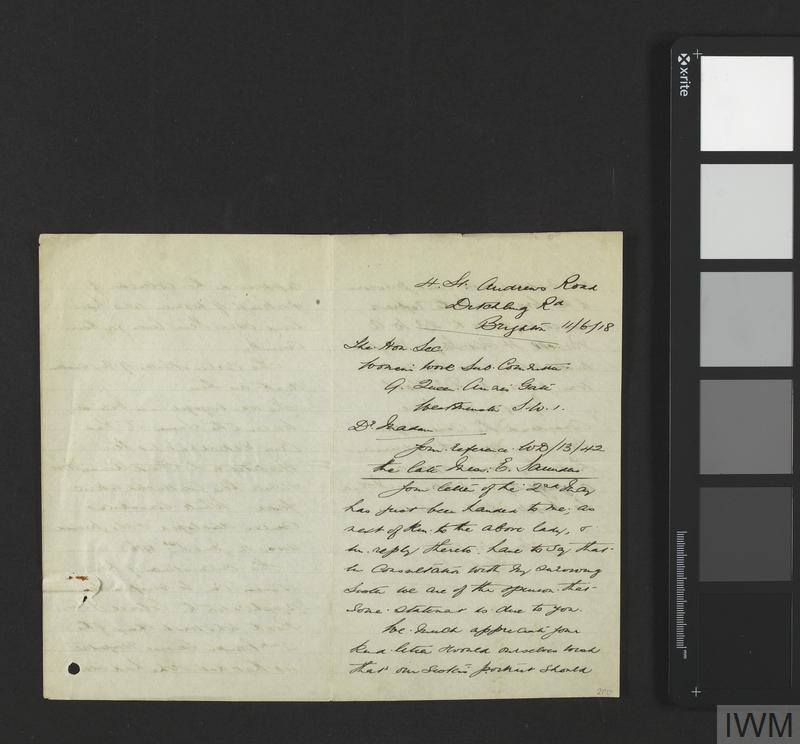 4. St. Andrews Road
Ditchling Rd
Brighton 11/6/18
The Hon. Sec.
Women's Work Sub. Comittee.
9. Queen Annes Gate
Westminster S.W.1.
Dr. Madam
Your reference WD/13/42
The late Miss. E. Saunders
Your letter of the 2nd May
has just been handed to me, as
next of Kin to the above lady, &
in reply thereto. have to say that
in Consultation with my surviving
Sister we are of the opinion that
Some Statement is due to you.
We much appreciate your
kind letter & would ourselves wish
that our Sister's portrait should
200
x-rite
IWM